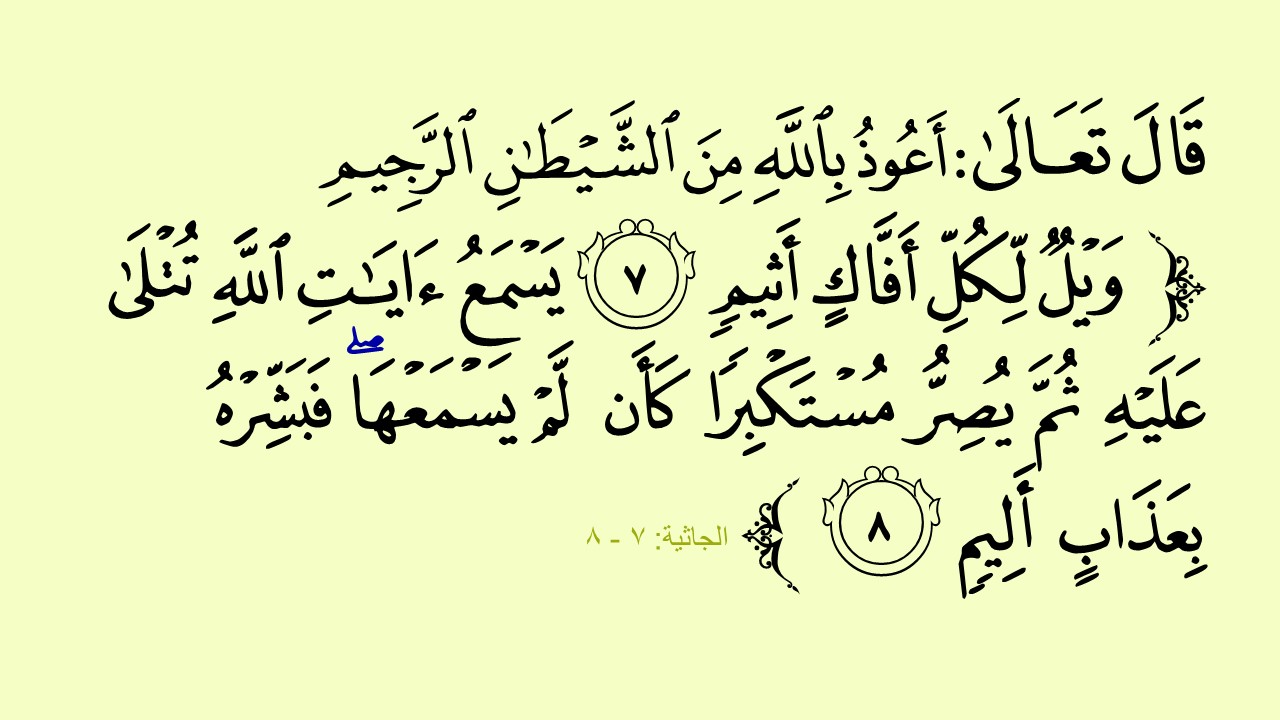 قَالَ تَعَـالَىٰ: أَعُوذُ بِٱللَّهِ مِنَ ٱلشَّيۡطَـٰنِ ٱلرَّجِيـمِ
﴿ وَيۡلٞ لِّكُلِّ أَفَّاكٍ أَثِيمٖ ٧ يَسۡمَعُ ءَايَـٰتِ ٱللَّهِ تُتۡلَىٰ
عَلَيۡهِ ثُمَّ يُصِرُّ مُسۡتَكۡبِرٗا كَأَن لَّمۡ يَسۡمَعۡهَاۖ فَبَشِّرۡهُ
بِعَذَابٍ أَلِيمٖ ٨ ﴾ الجاثية: ٧ - ٨